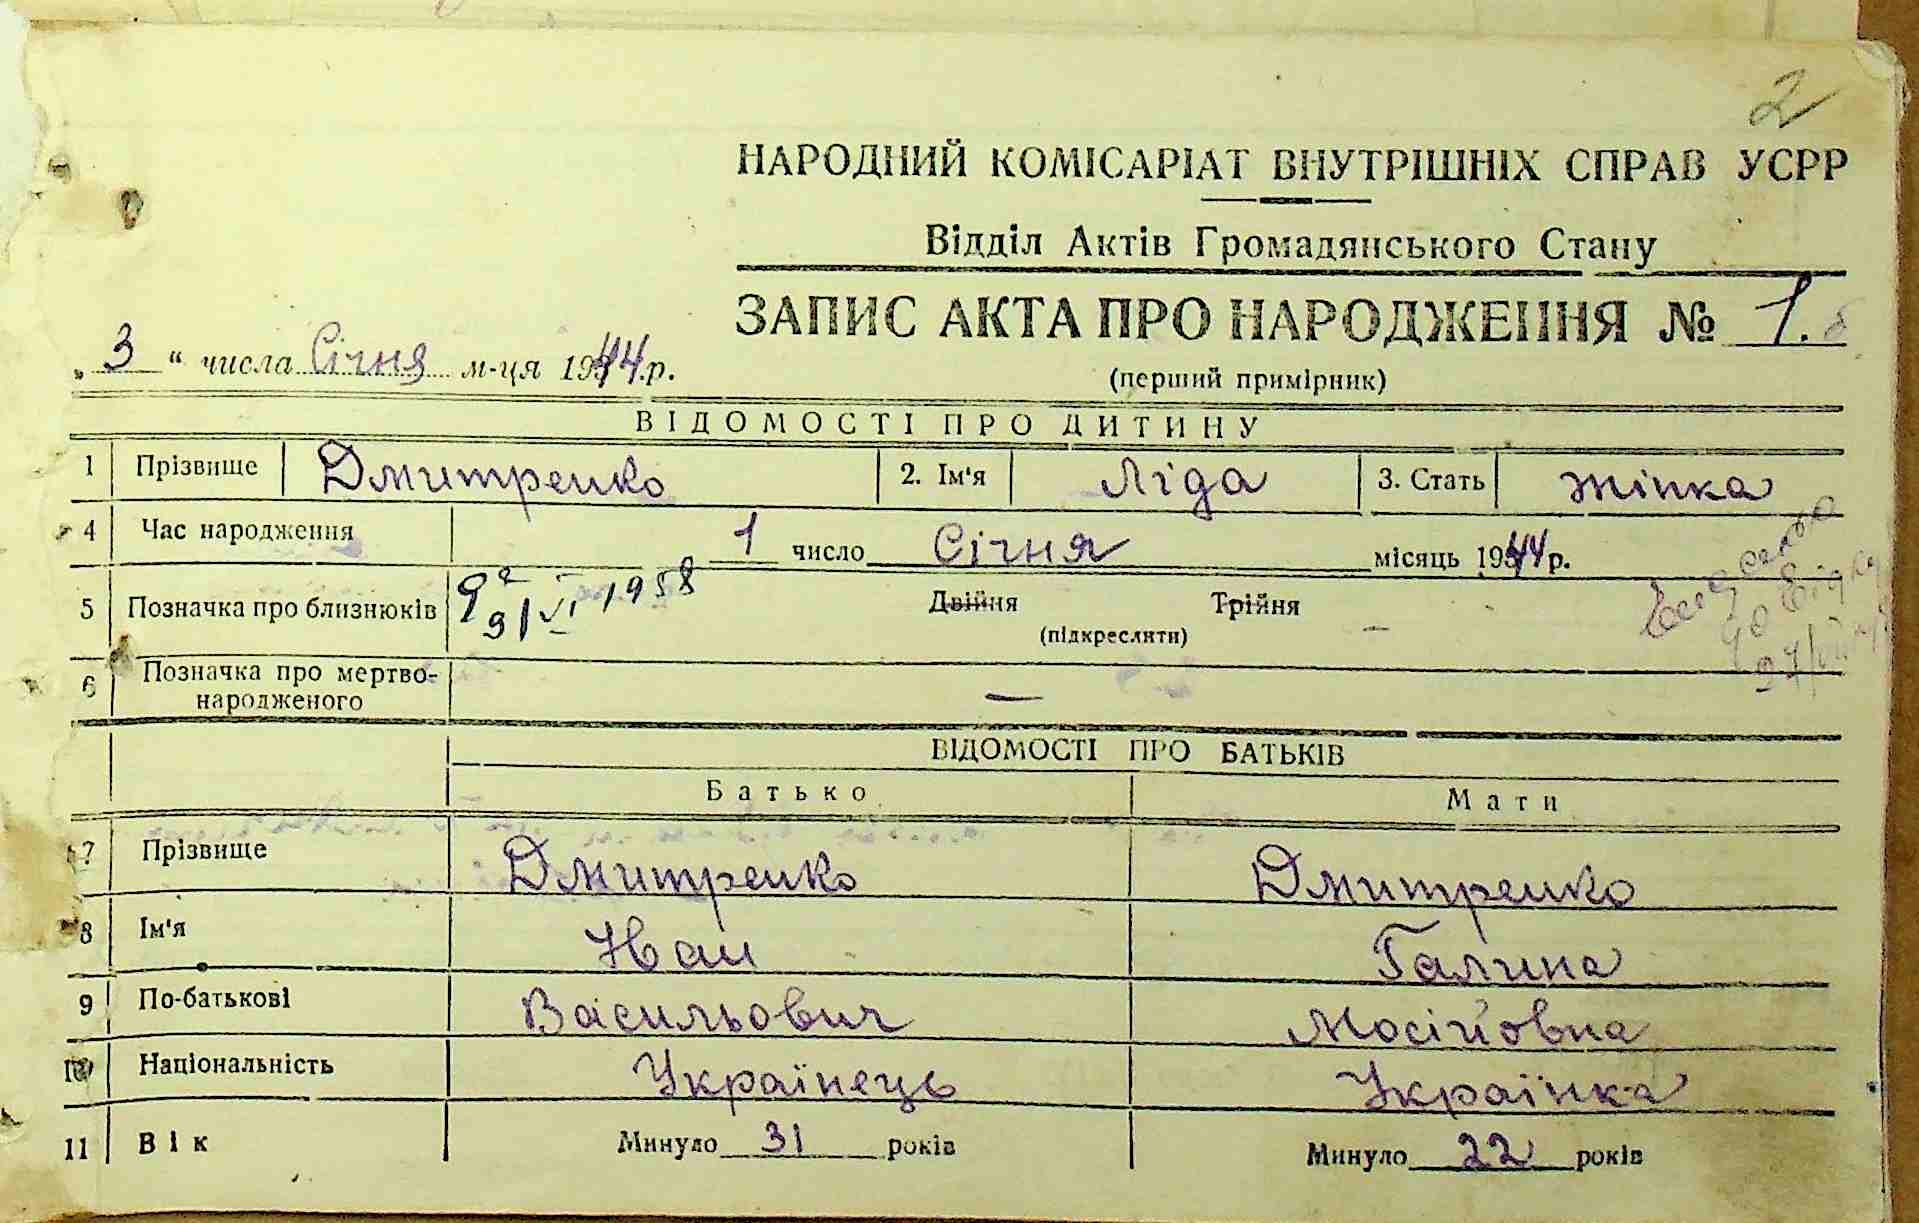 2
НАРОДНИЙ КОМІСАРІАТ ВНУТРІШНІХ СПРАВ УСРР
Відділ Актів Громадянського Стану
ЗАПИС АКТА ПРО НАРОДЖЕННЯ № 1.
„ 3 “ числа Січня м-ця 1944 р.
(перший примірник)
ВІДОМОСТІ ПРО ДИТИНУ
1 Прізвище Дмитренко 2. Ім'я Ліда 3. Стать жінка
4 Час народження 1 число Січня місяць 1944 р.
5 Позначка про близнюків 9/VI 1958 Двійня Трійня —
(підкреслити)
6 Позначка про мертво-
народженого —
ВІДОМОСТІ ПРО БАТЬКІВ
Батько Мати
7 Прізвище Дмитренко Дмитренко
8 Ім'я Иван Галина
9 По-батькові Васильович Мосійовна
10 Національність Українець Українка
11 Вік Минуло 31 років Минуло 22 років